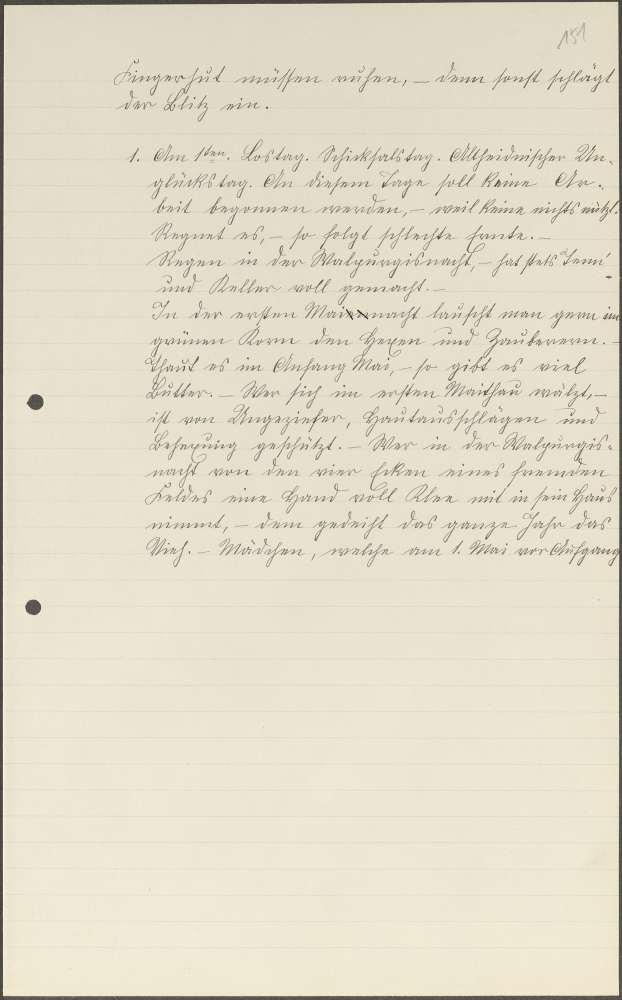 151
Fingerhut müssen ruhen, – denn sonst schlägt
der Blitz ein.
1. Am 1ten. Lostag. Schicksalstag. Altheidnischer Un-
glückstag. An diesem Tage soll keine Ar-
beit begonnen werden, – weil keine nichts nützt.
Regnet es, – so folgt schlechte Ernte. –
Regen in der Walpurgisnacht, – hat stets Tenn'
und Keller voll gemacht. –
In der ersten Mainacht lauscht man gern im
grünen Korn den Hexen und Zauberern. –
Thaut es im Anfang Mai, – so gibt es viel
Butter. – Wer sich im ersten Maithau wälzt, –
ist von Ungeziefer, Hautausschlägen und
Behexung geschützt. – Wer in der Walpurgis-
nacht von den vier Ecken eines fremden
Feldes eine Hand voll Klee mit in sein Haus
nimmt, – dem gedeiht das ganze Jahr das
Vieh. – Mädchen, welche am 1. Mai vor Aufgang